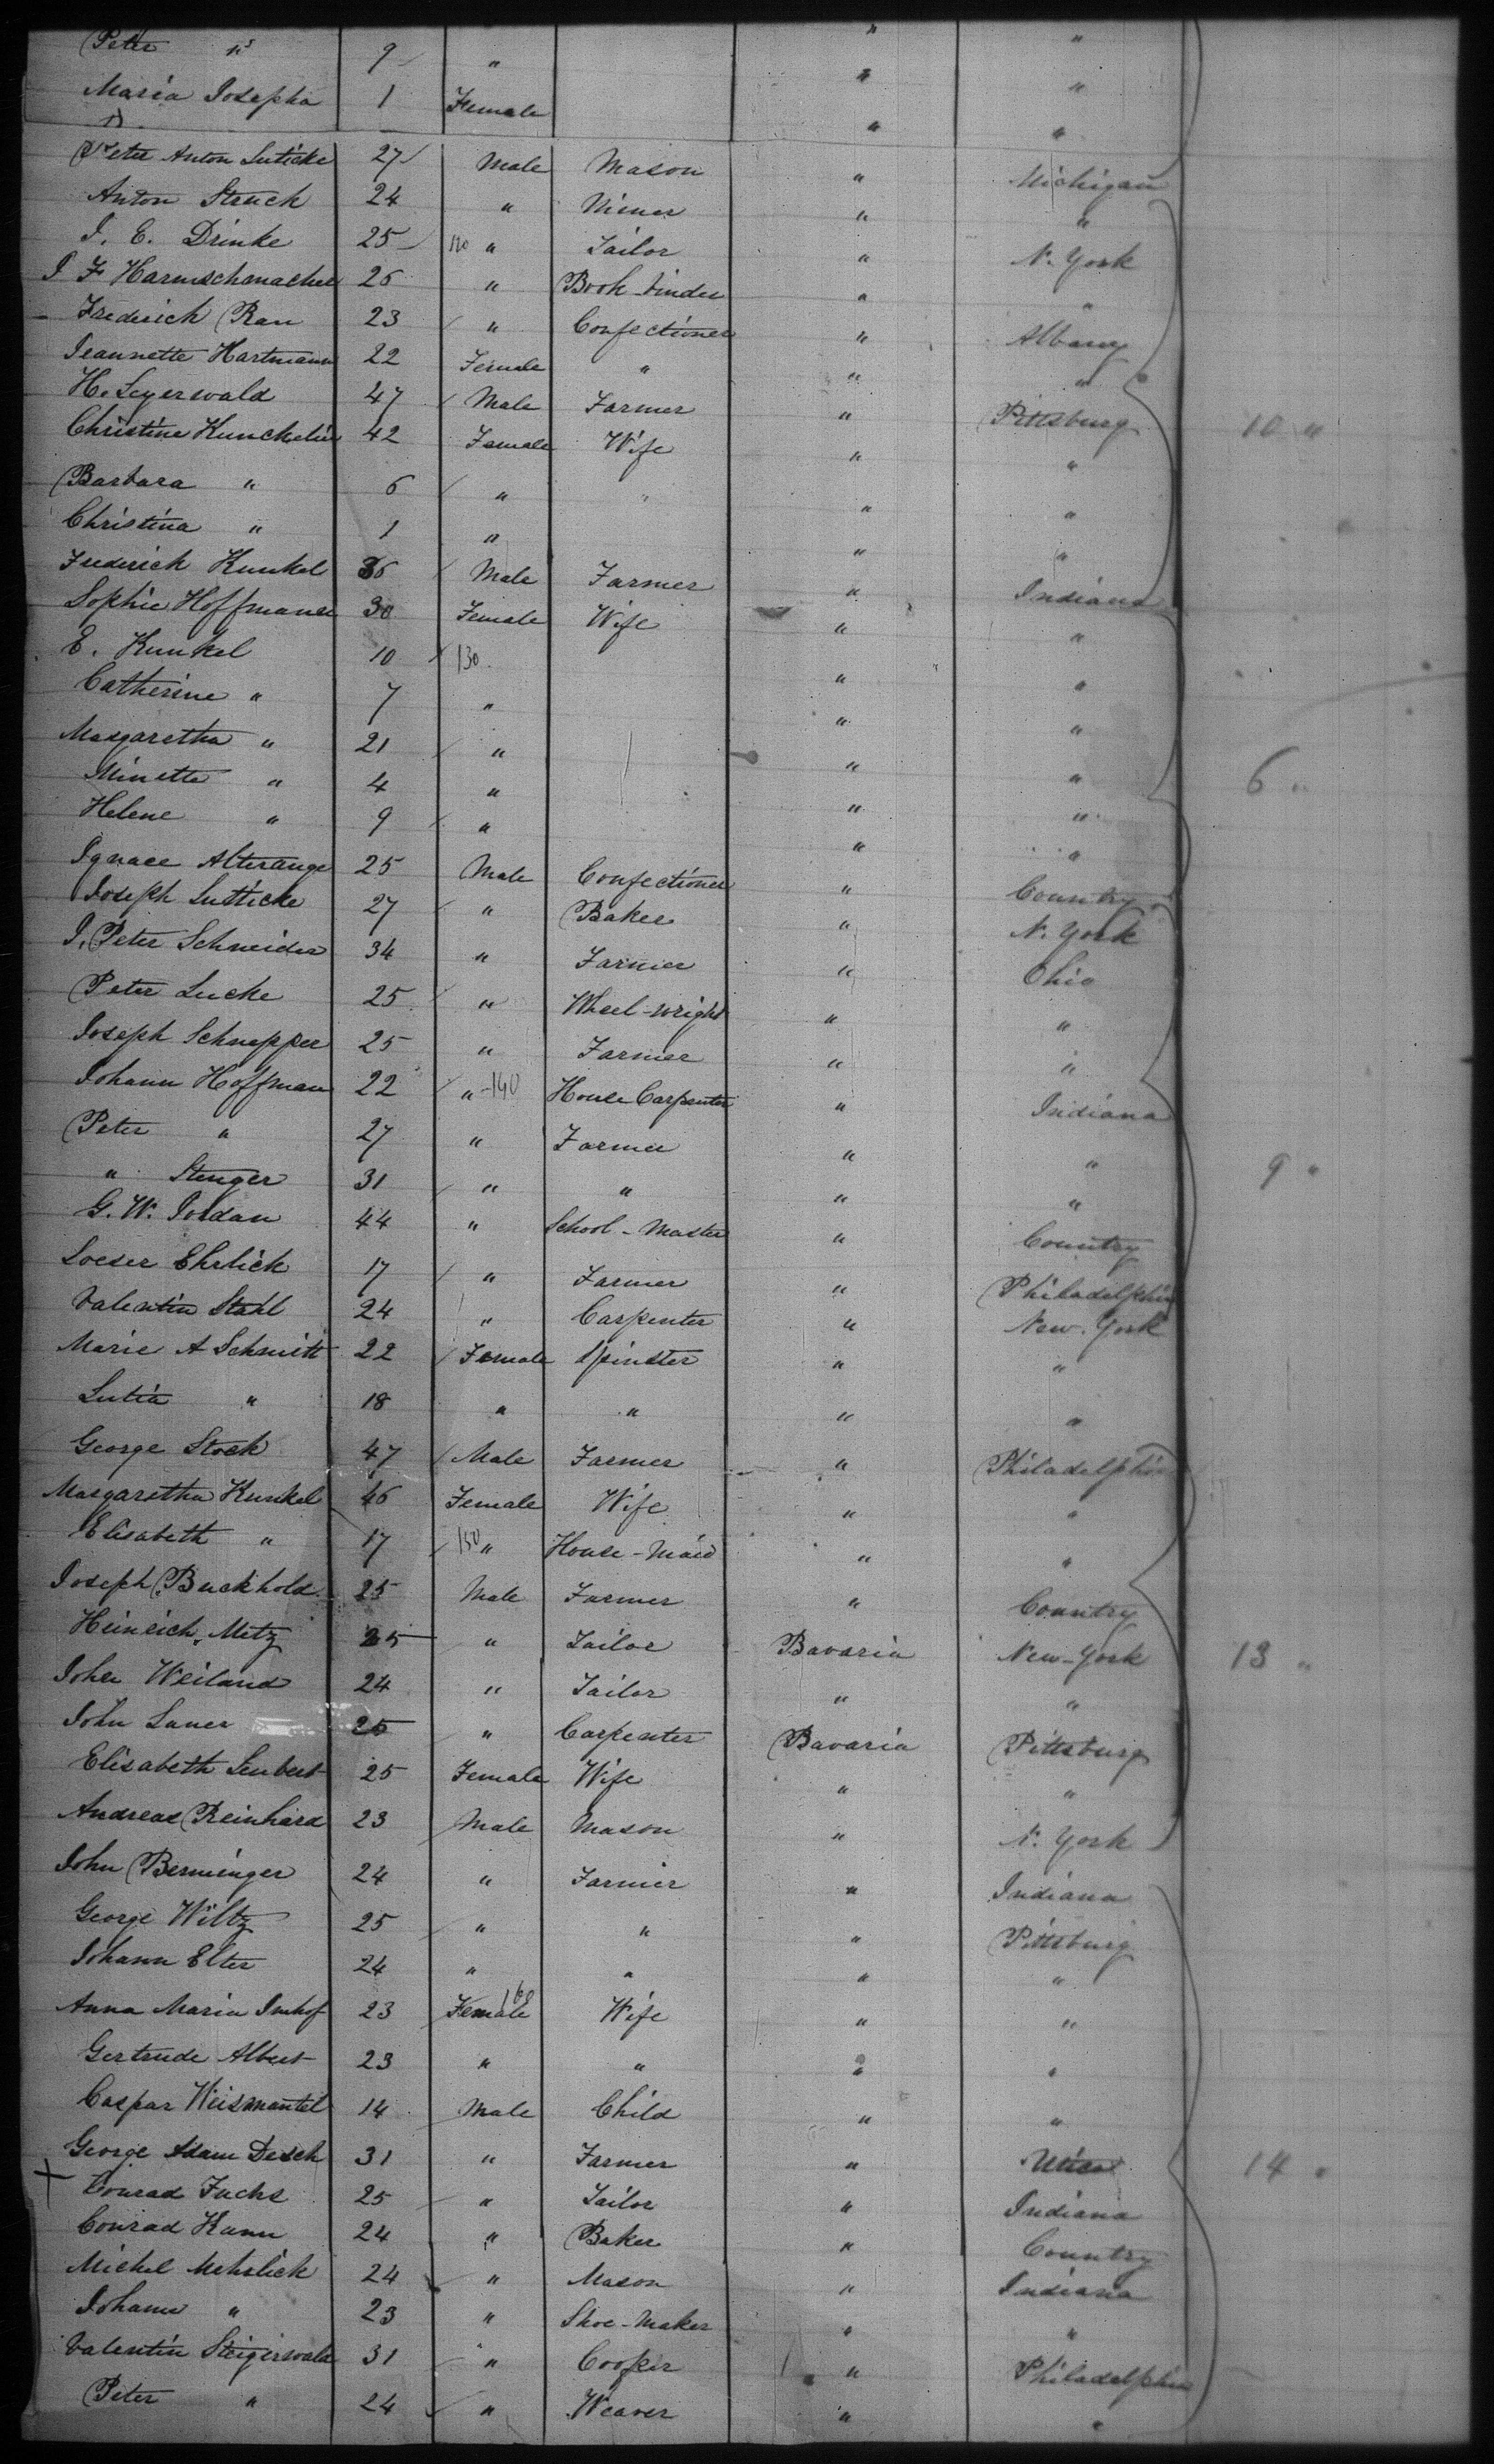 Peter " 9 " " "
Maria Josepha 1 Female " "
Peter Anton Luticke 27 Male Mason " Michigan
Anton Struck 24 " Miner " "
J. E. Drinke 25 120 " Tailor " N. York
J F Harmschmacher 26 " Book-binder " "
Frederich Rau 23 " Confectioner " Albany
Jeannette Hartmann 22 Female " " "
H. Seyerwald 47 Male Farmer " Pittsburg 10 "
Christine Kunckelin 42 Female Wife " "
Barbara " 6 " " " "
Christina " 1 " " "
Frederich Kunkel 36 Male Farmer " Indiana
Sophie Hoffmann 30 Female Wife " "
E. Kunkel 10 130 " "
Catherine " 7 " " "
Margaretha " 21 " " "
Minette " 4 " " " 6 "
Helene " 9 " " "
Ignace Alterauge 25 Male Confectioner " Country
Joseph Lutticke 27 " Baker " N. York
J. Peter Schneider 34 " Farmer " Ohio
Peter Lucke 25 " Wheel-wright " "
Joseph Schnepper 25 " Farmer " "
Johann Hoffman 22 " 140 House Carpenter " Indiana
Peter " 27 " Farmer " " 9 "
" Stenger 31 " " " "
G. W. Jordan 44 " School-Master " Country
Loeser Ehrlich 17 " Farmer " Philadelphia
Valentin Stahl 24 " Carpenter " New York
Marie A Schmitt 22 Female Spinster " "
Lutia " 18 " " " "
George Stock 47 Male Farmer " Philadelphia
Margaretha Kunkel 46 Female Wife " "
Elisabeth " 17 150 " House-Maid " "
Joseph Buckhold 25 Male Farmer " Country
Heinrich Metz 25 " Tailor Bavaria New-York 13 "
John Weiland 24 " Tailor " "
John Lauer 25 " Carpenter Bavaria Pittsburg
Elisabeth Seubert 25 Female Wife " "
Andreas Reinhard 23 Male Mason " N. York
John Berninger 24 " Farmer " Indiana
George Wiltz 25 " " " Pittsburg
Johann Elter 24 " " " "
Anna Maria Imhof 23 Female 160 Wife " "
Gertrude Albert 23 " " " "
Caspar Weismantel 14 Male Child " "
George Adam Desch 31 " Farmer " Utica 14 "
+ Conrad Fuchs 25 " Tailor " Indiana
Conrad Kann 24 " Baker " Country
Michel Mehrlich 24 " Mason " Indiana
Johann " 23 " Shoe-Maker " "
Valentin Steigerwald 31 " Cooper " Philadelphia
Peter " 24 " Weaver " "